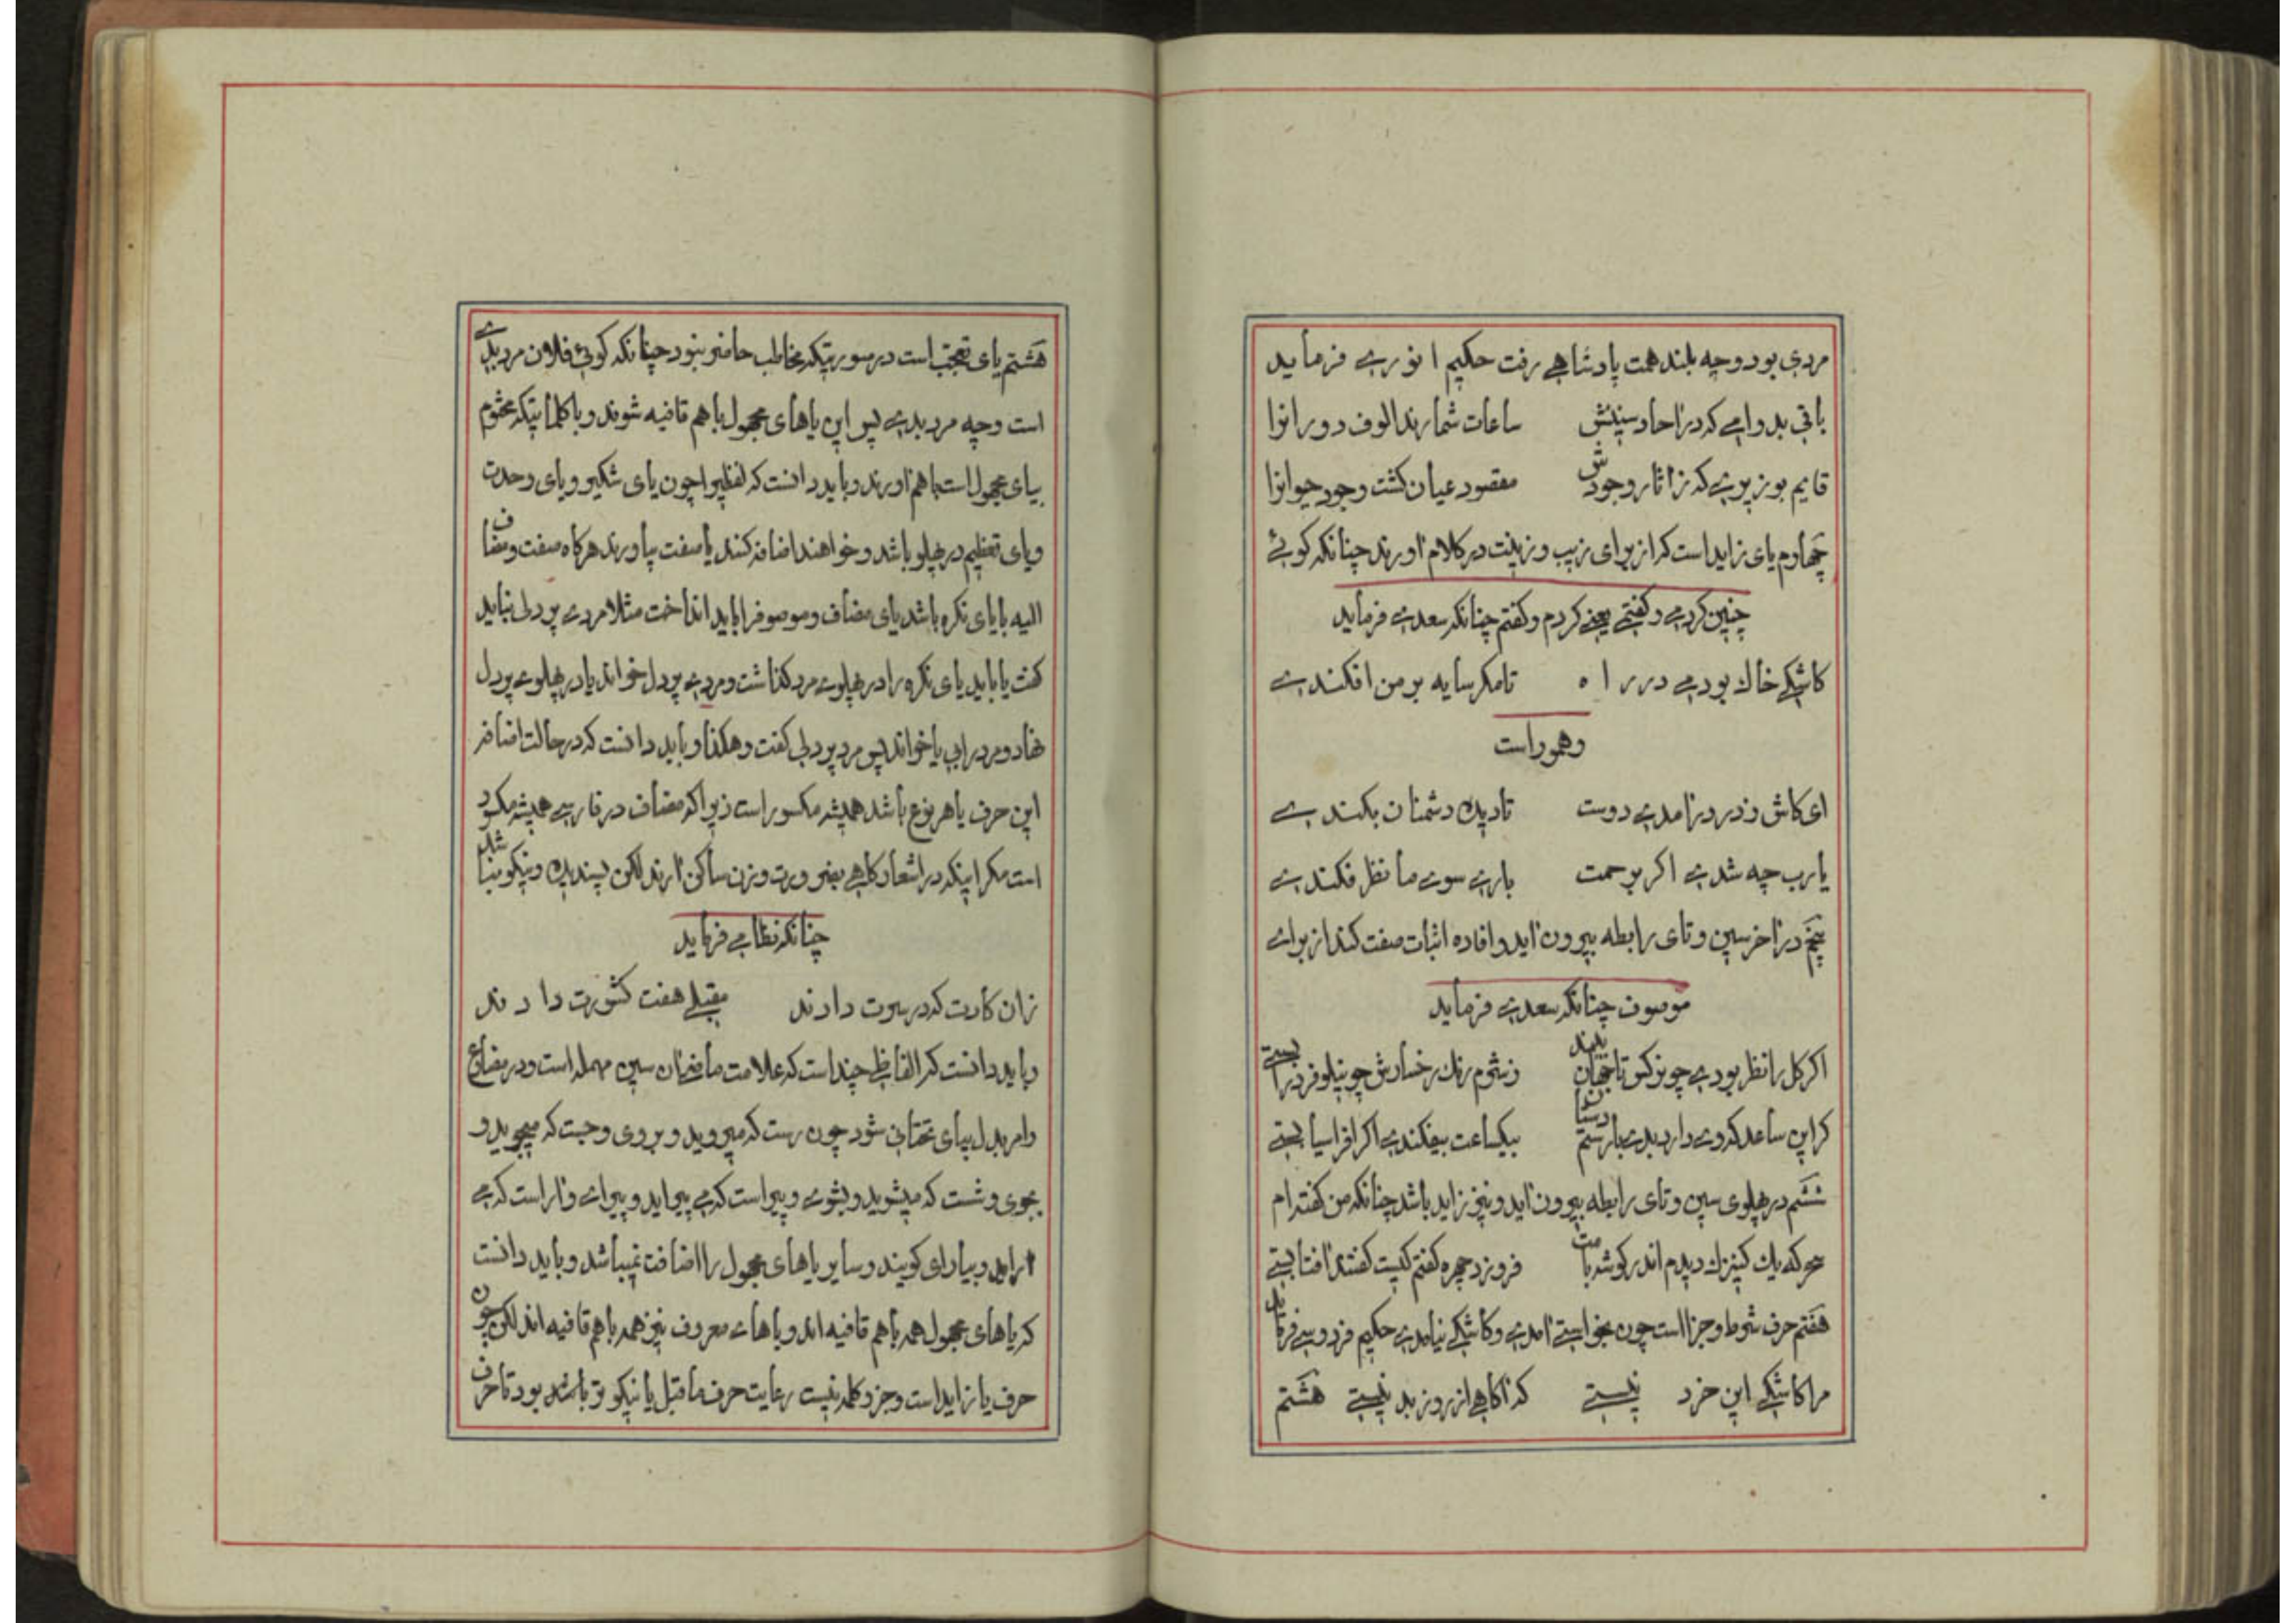 مردی بود و چه بلند همت پادشاهے رفت حکیم انورے فرماید
باقی بدوامے که در احاد سنینش ساعات شمارند الوف دورانرا
قایم بوزیرے که ز اثار وجودش مقصود عیان کشت وجود حیوانرا
چهارم یای زاید است که از برای زیب و زینت در کلام اورند چنانکه کوئے
چنین کردمے و کفتمے یعنے کردم و کفتم چنانکه سعدے فرماید
کاشکے خاك بودمے در راه تا مکر سایه بر من افکندے
و هموراست
ای کاش در امدے دوست تا دیده دشمنان بکندے
یا رب چه شدے اکر برحمت بارے سوے ما نظر فکندے
پنجم در اخر سین و تای رابطه بیرون اید و افاده اثبات صفت کند از براے
موصوف چنانکه سعدے فرماید
اکر کل را نظر بودے چو نرکس تا جهان بیند ز شرم رنك رخسارش چو نیلوفر در ابستے
کر این ساعد که وے دارد بدے با رستم دستان بیکساعت بیفکندے اکر افراسیابستے
ششم در پهلوی سین و تای رابطه بیرون اید و نیز زاید باشد چنانکه من کفته‌ام
سحرکه یك کنیزك دیدم اندر کوشه بامت فروزد چهره کفتم کیست کفتند افتابستے
هفتم حرف شرط و جزا است چون بخواستے امدے و کاشکے نیامدے حکیم فردوسے فرماید
مرا کاشکے این خرد نیستے که اکاهے از روز بد نیستے هشتم
هشتم یای تعجب است در صورتیکه مخاطب حاضر نبود چنانکه کوئے فلان مرد بدے
است و چه مرد بدے پس این یاهای مجهول با هم قافیه شوند و با کلماتیکه مختوم
بیای مجهول است با هم اورند و باید دانست که لفظیرا چون یای تنکیر و یای وحدت
و یای تعظیم در پهلو باشد و خواهند اضافه کنند یا صفت بیاورند هرکاه صفت و مضاف
الیه با یای نکره باشد یای مضاف و موصوفرا باید انداخت مثلا مردے پر دلی نباید
کفت یا باید یای نکره را در پهلوے مرد کذاشت و مردے پر دل خواند یا در پهلوے پر دل
نهاد و مرد را بی یا خواند پس مرد پر دلی کفت و هکذا و باید دانست که در حالت اضافه
این حرف یا هر نوع باشد همیشه مکسور است زیرا که مضاف در فارسے همیشه مکسور
است مکر اینکه در اشعار کاهے بضرورت وزن ساکن ارند لکن پسندیده و نیکو نباشد
چنانکه نظامے فرماید
زان کارت که در سرت دادند مقبلے هفت کشورت دادند
و باید دانست که الفاظے چند است که علامت ماضے ان سین مهمله است و در مضارع
و امر بدل بیای تحتانی شود چون رست که میروید و بروی و جست که میجوید و
بجوی و شست که میشوید و بشوے و پیراست که مے پیراید و پیراے و اراست که مے
اراید و بیارای کویند و سایر یاهای مجهول را اضافت نمیباشد و باید دانست
که یاهای مجهول همه با هم قافیه اند و یاهاے معروف نیز همه با هم قافیه اند لکن چون
حرف یا زاید است و جزو کلمه نیست رعایت حرف ما قبل یا نیکو تر باشد بود تا حرف